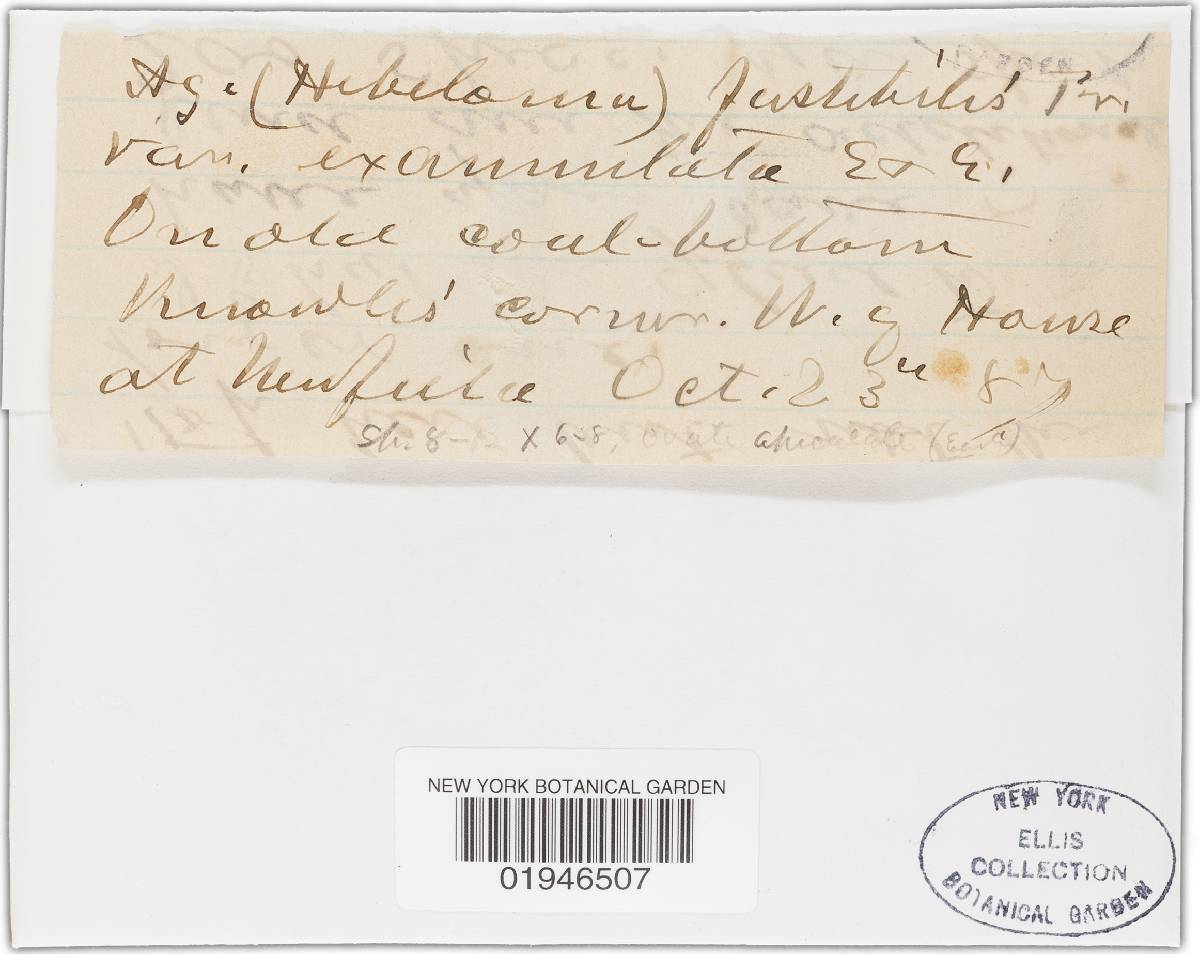 Ag. (Hebeloma) fastibilis Fr.
var. exannulata E & E.
On old coal-bottom
Knowles' corner. W. of House
at Newfield Oct. 23" 87
Sp. 8-12 X 6-8, ovate apiculate (Earle)
NEW YORK BOTANICAL GARDEN
01946507
NEW YORK
ELLIS
COLLECTION
BOTANICAL GARDEN